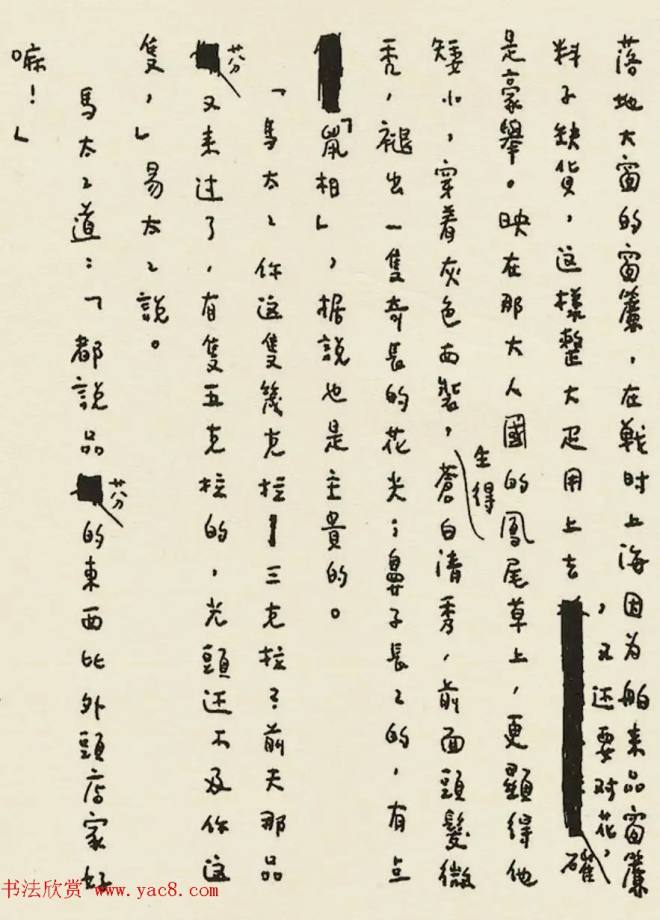 落地大窗的窗簾，在戰时上海因为舶来品窗簾
料子缺貨，这樣整大疋用上去，又还要对花，確
是豪舉。映在那大人國的鳳尾草上，更顯得他
矮小，穿着灰色西裝，生得蒼白清秀，前面頭髮微
禿，褪出一隻奇長的花尖；鼻子長〻的，有点
「鼠相」，据説也是主貴的。
「馬太〻你这隻幾克拉——三克拉？前天那品
芬又来过了，有隻五克拉的，光頭还不及你这
隻，」易太〻説。
馬太〻道：「都説品芬的東西比外頭店家好
嘛！」
书法欣赏 www.yac8.com